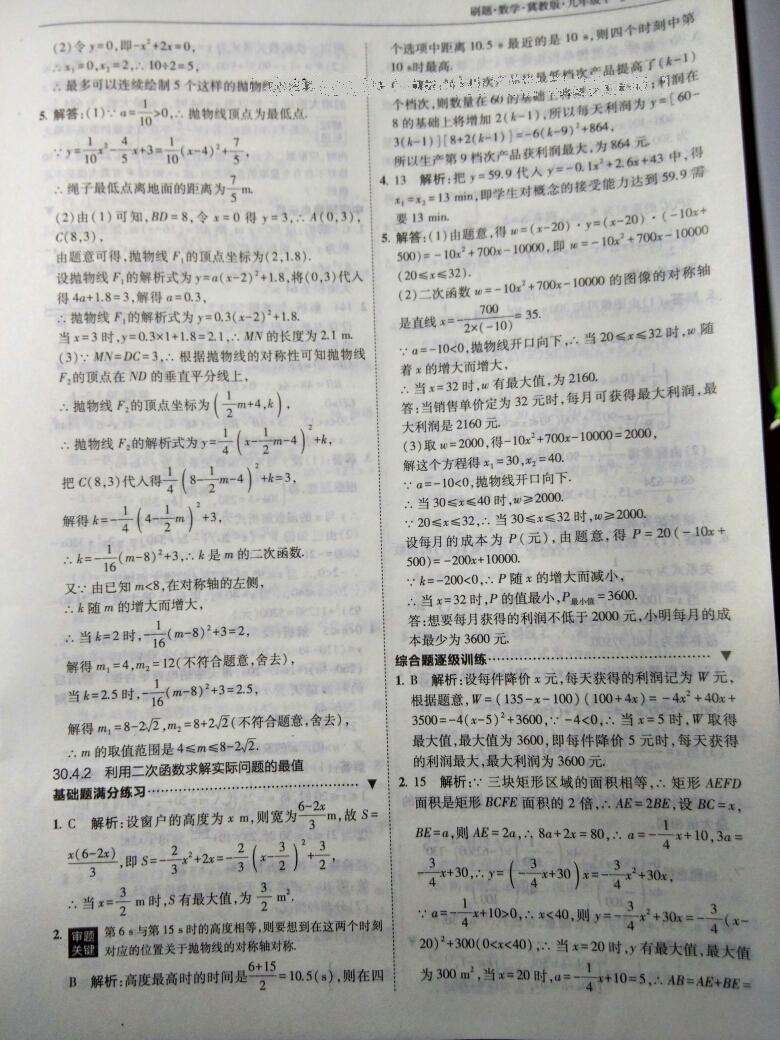 刷题·数学·冀教版·九年级下
(2)令 y=0,即-x²+2x=0,
∴x₁=0,x₂=2,∴10÷2=5,
∴最多可以连续绘制 5 个这样的抛物线
5. 解答:(1)∵a=1/10>0,∴抛物线顶点为最低点.
∵y=1/10x²-4/5x+3=1/10(x-4)²+7/5,
∴绳子最低点离地面的距离为7/5m.
(2)由(1)可知,BD=8,令 x=0 得 y=3,∴A(0,3),
C(8,3),
由题意可得,抛物线 F₁的顶点坐标为(2,1.8).
设抛物线 F₁的解析式为 y=a(x-2)²+1.8,将(0,3)代入
得 4a+1.8=3,解得 a=0.3,
∴抛物线 F₁的解析式为 y=0.3(x-2)²+1.8.
当 x=3 时,y=0.3×1+1.8=2.1,∴MN 的长度为 2.1 m.
(3)∵MN=DC=3,∴根据抛物线的对称性可知抛物线
F₂的顶点在 ND 的垂直平分线上,
∴抛物线 F₂的顶点坐标为(1/2m+4,k),
∴抛物线 F₂的解析式为 y=1/4(x-1/2m-4)²+k,
把 C(8,3)代入得1/4(8-1/2m-4)²+k=3,
解得 k=-1/4(4-1/2m)²+3,
∴k=-1/16(m-8)²+3,∴k 是 m 的二次函数.
又∵由已知 m<8,在对称轴的左侧,
∴k 随 m 的增大而增大,
∴当 k=2 时,-1/16(m-8)²+3=2,
解得 m₁=4,m₂=12(不符合题意,舍去),
当 k=2.5 时,-1/16(m-8)²+3=2.5,
解得 m₁=8-2√2,m₂=8+2√2(不符合题意,舍去),
∴m 的取值范围是 4≤m≤8-2√2.
30.4.2 利用二次函数求解实际问题的最值
基础题满分练习
1. C 解析:设窗户的高度为 x m,则宽为(6-2x)/3m,故 S=
x(6-2x)/3,即 S=-2/3x²+2x=-2/3(x-3/2)²+3/2,
∴当 x=3/2 m 时,S 有最大值,为3/2 m².
2. 审题关键 第 6 s 与第 15 s 时的高度相等,则要想到在这两个时刻
对应的位置关于抛物线的对称轴对称.
B 解析:高度最高时的时间是(6+15)/2=10.5(s),则在四
个选项中距离 10.5 s 最近的是 10 s,则四个时刻中第
10 s时最高.
档次产品比最低档次产品提高了(k-1)
个档次,则数量在 60 的基础上将减少 利润在
8 的基础上将增加 2(k-1),所以每天利润为 y=[60-
3(k-1)][8+2(k-1)]=-6(k-9)²+864,
所以生产第 9 档次产品获利润最大,为 864 元.
4. 13 解析:把 y=59.9 代入 y=-0.1x²+2.6x+43 中,得
x₁=x₂=13 min,即学生对概念的接受能力达到 59.9 需
要 13 min.
5. 解答:(1)由题意,得 w=(x-20)·y=(x-20)·(-10x+
500)=-10x²+700x-10000,即 w=-10x²+700x-10000
(20≤x≤32).
(2)二次函数 w=-10x²+700x-10000 的图像的对称轴
是直线 x=-700/(2×(-10))=35.
∵a=-10<0,抛物线开口向下,∴当 20≤x≤32 时,w 随
着 x 的增大而增大,
∴当 x=32 时,w 有最大值,为 2160.
答:当销售单价定为 32 元时,每月可获得最大利润,最
大利润是 2160 元.
(3)取 w=2000,得-10x²+700x-10000=2000,
解这个方程得 x₁=30,x₂=40.
∵a=-10<0,抛物线开口向下.
∴当 30≤x≤40 时,w≥2000.
∵20≤x≤32,∴当 30≤x≤32 时,w≥2000.
设每月的成本为 P(元),由题意,得 P=20(-10x+
500)=-200x+10000.
∵k=-200<0,∴P 随 x 的增大而减小,
∴当 x=32 时,P 的值最小,P最小值=3600.
答:想要每月获得的利润不低于 2000 元,小明每月的成
本最少为 3600 元.
综合题逐级训练
1. B 解析:设每件降价 x 元,每天获得的利润记为 W 元,
根据题意,W=(135-x-100)(100+4x)=-4x²+40x+
3500=-4(x-5)²+3600,∵-4<0,∴当 x=5 时,W 取得
最大值,最大值为 3600,即每件降价 5 元时,每天获得
的利润最大,最大利润为 3600 元.
2. 15 解析:∵三块矩形区域的面积相等,∴矩形 AEFD
面积是矩形 BCFE 面积的 2 倍,∴AE=2BE,设 BC=x,
BE=a,则 AE=2a,∴8a+2x=80,∴a=-1/4x+10,3a=
-3/4x+30,∴y=(-3/4x+30)x=-3/4x²+30x,
∵a=-1/4x+10>0,∴x<40,则 y=-3/4x²+30x=-3/4(x-
20)²+300(0<x<40),∴当 x=20 时,y 有最大值,最大值
为 300 m²,当 x=20 时,a=-1/4x+10=5,∴AB=AE+BE=